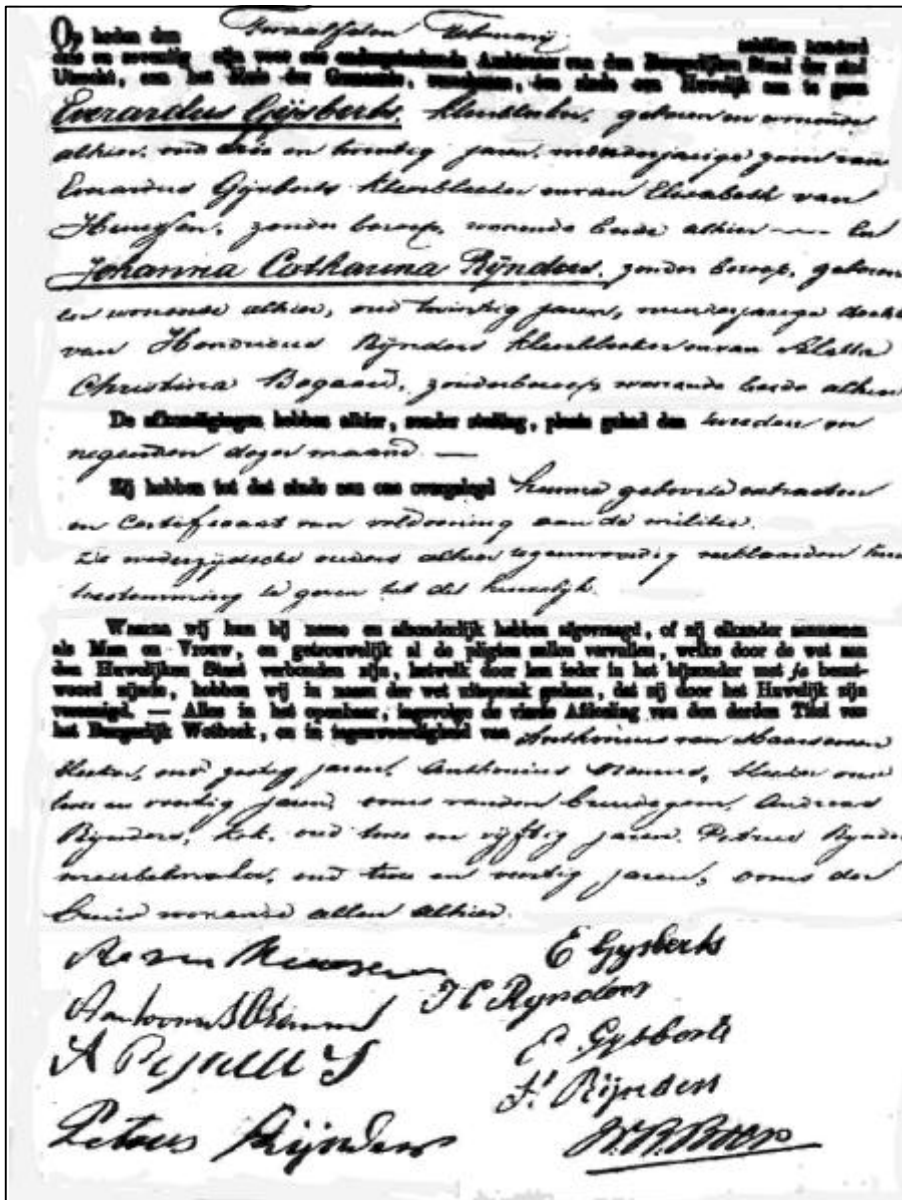 Op heden den Twaalfden Februarij achttien honderd
drie en zeventig zijn voor ons ondergeteekende Ambtenaar van den Burgerlijken Stand der stad
Utrecht, aan het Huis der Gemeente, verschenen, ten einde een Huwelijk aan te gaan
Everardus Gijsberts, kleerbleeker, geboren en wonende
alhier, oud drie en twintig jaren, meerderjarige zoon van
Everardus Gijsberts kleerbleeker en van Elisabeth van
zonder beroep, wonende beide alhier en
Johanna Catharina Rijnders, zonder beroep, geboren
en wonende alhier, oud twintig jaren, minderjarige dochter
van Hendricus Rijnders kleerbleeker en van Aletta
Christina Bogaard, zonder beroep wonende beide alhier
De afkondigingen hebben alhier, zonder stuiting, plaats gehad den tweeden en
negenden dezer maand —
Zij hebben tot dat einde aan ons overgelegd hunne geboorte extracten
en Certificaat van voldoening aan de militie.
De wederzijdsche ouders alhier tegenwoordig verklaarden hun
toestemming te geven tot dit huwelijk.
Waarna wij hun bij name en afzonderlijk hebben afgevraagd, of zij elkander aannemen
als Man en Vrouw, en getrouwelijk al de pligten zullen vervullen, welke door de wet aan
den Huwelijken Staat verbonden zijn, hetwelk door hen ieder in het bijzonder met ja beant-
woord zijnde, hebben wij in naam der wet uitspraak gedaan, dat zij door het Huwelijk zijn
vereenigd. — Alles in het openbaar, ingevolge de vierde Afdeeling van den derden Titel van
het Burgerlijk Wetboek, en in tegenwoordigheid van Anthonius van
bleeker, oud zestig jaren, Anthonius bleeker oud
twee en veertig jaren, ooms van den bruidegom, Andreas
Rijnders, kok, oud twee en vijftig jaren, Petrus Rijnders
meubelmaker, oud twee en veertig jaren, ooms der
bruid wonende allen alhier.
E Gysberts
J C Rynders
E Gysberts
A Rijnders
H Rijnders
Petrus Rijnders